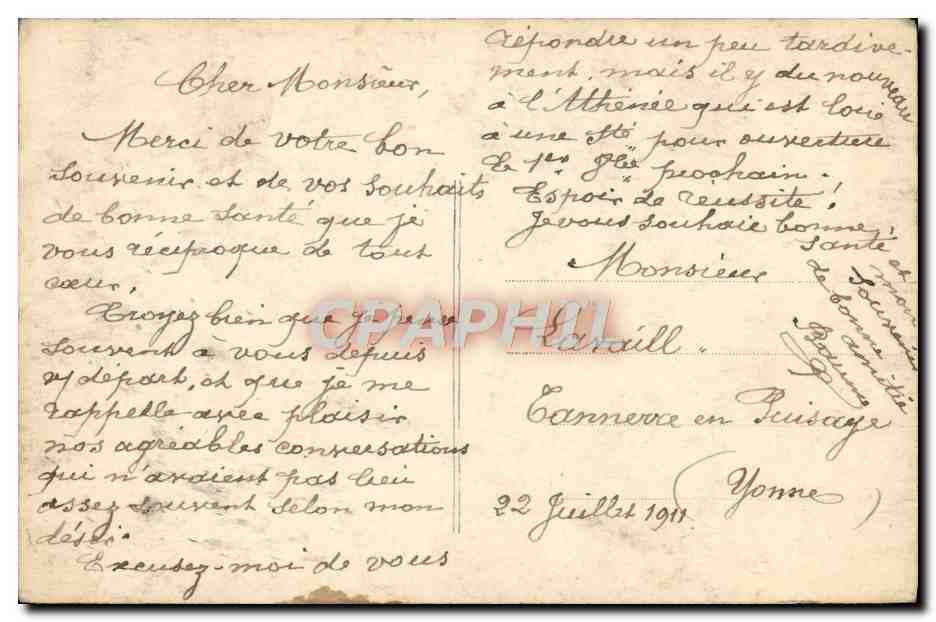 Cher Monsieur,
Merci de votre bon
souvenir et de vos souhaits
de bonne santé que je
vous réciproque de tout
cœur.
Croyez bien que je pense
souvent à vous depuis
v/ départ, et que je me
rappelle avec plaisir
nos agréables conversations
qui n'avaient pas lieu
assez souvent selon mon
désir.
Excusez-moi de vous
répondre un peu tardive-
ment, mais il y du nouveau
à l'Athénée qui est loué
à une Sté pour ouverture
le 1er prochain.
Espoir de réussite!
Je vous souhaie bonne
santé et mon
souvenir
de bonne amitié
Monsieur
Lavaill
Tannerre en Puisaye
(Yonne)
22 Juillet 1911.
CPAPHIL